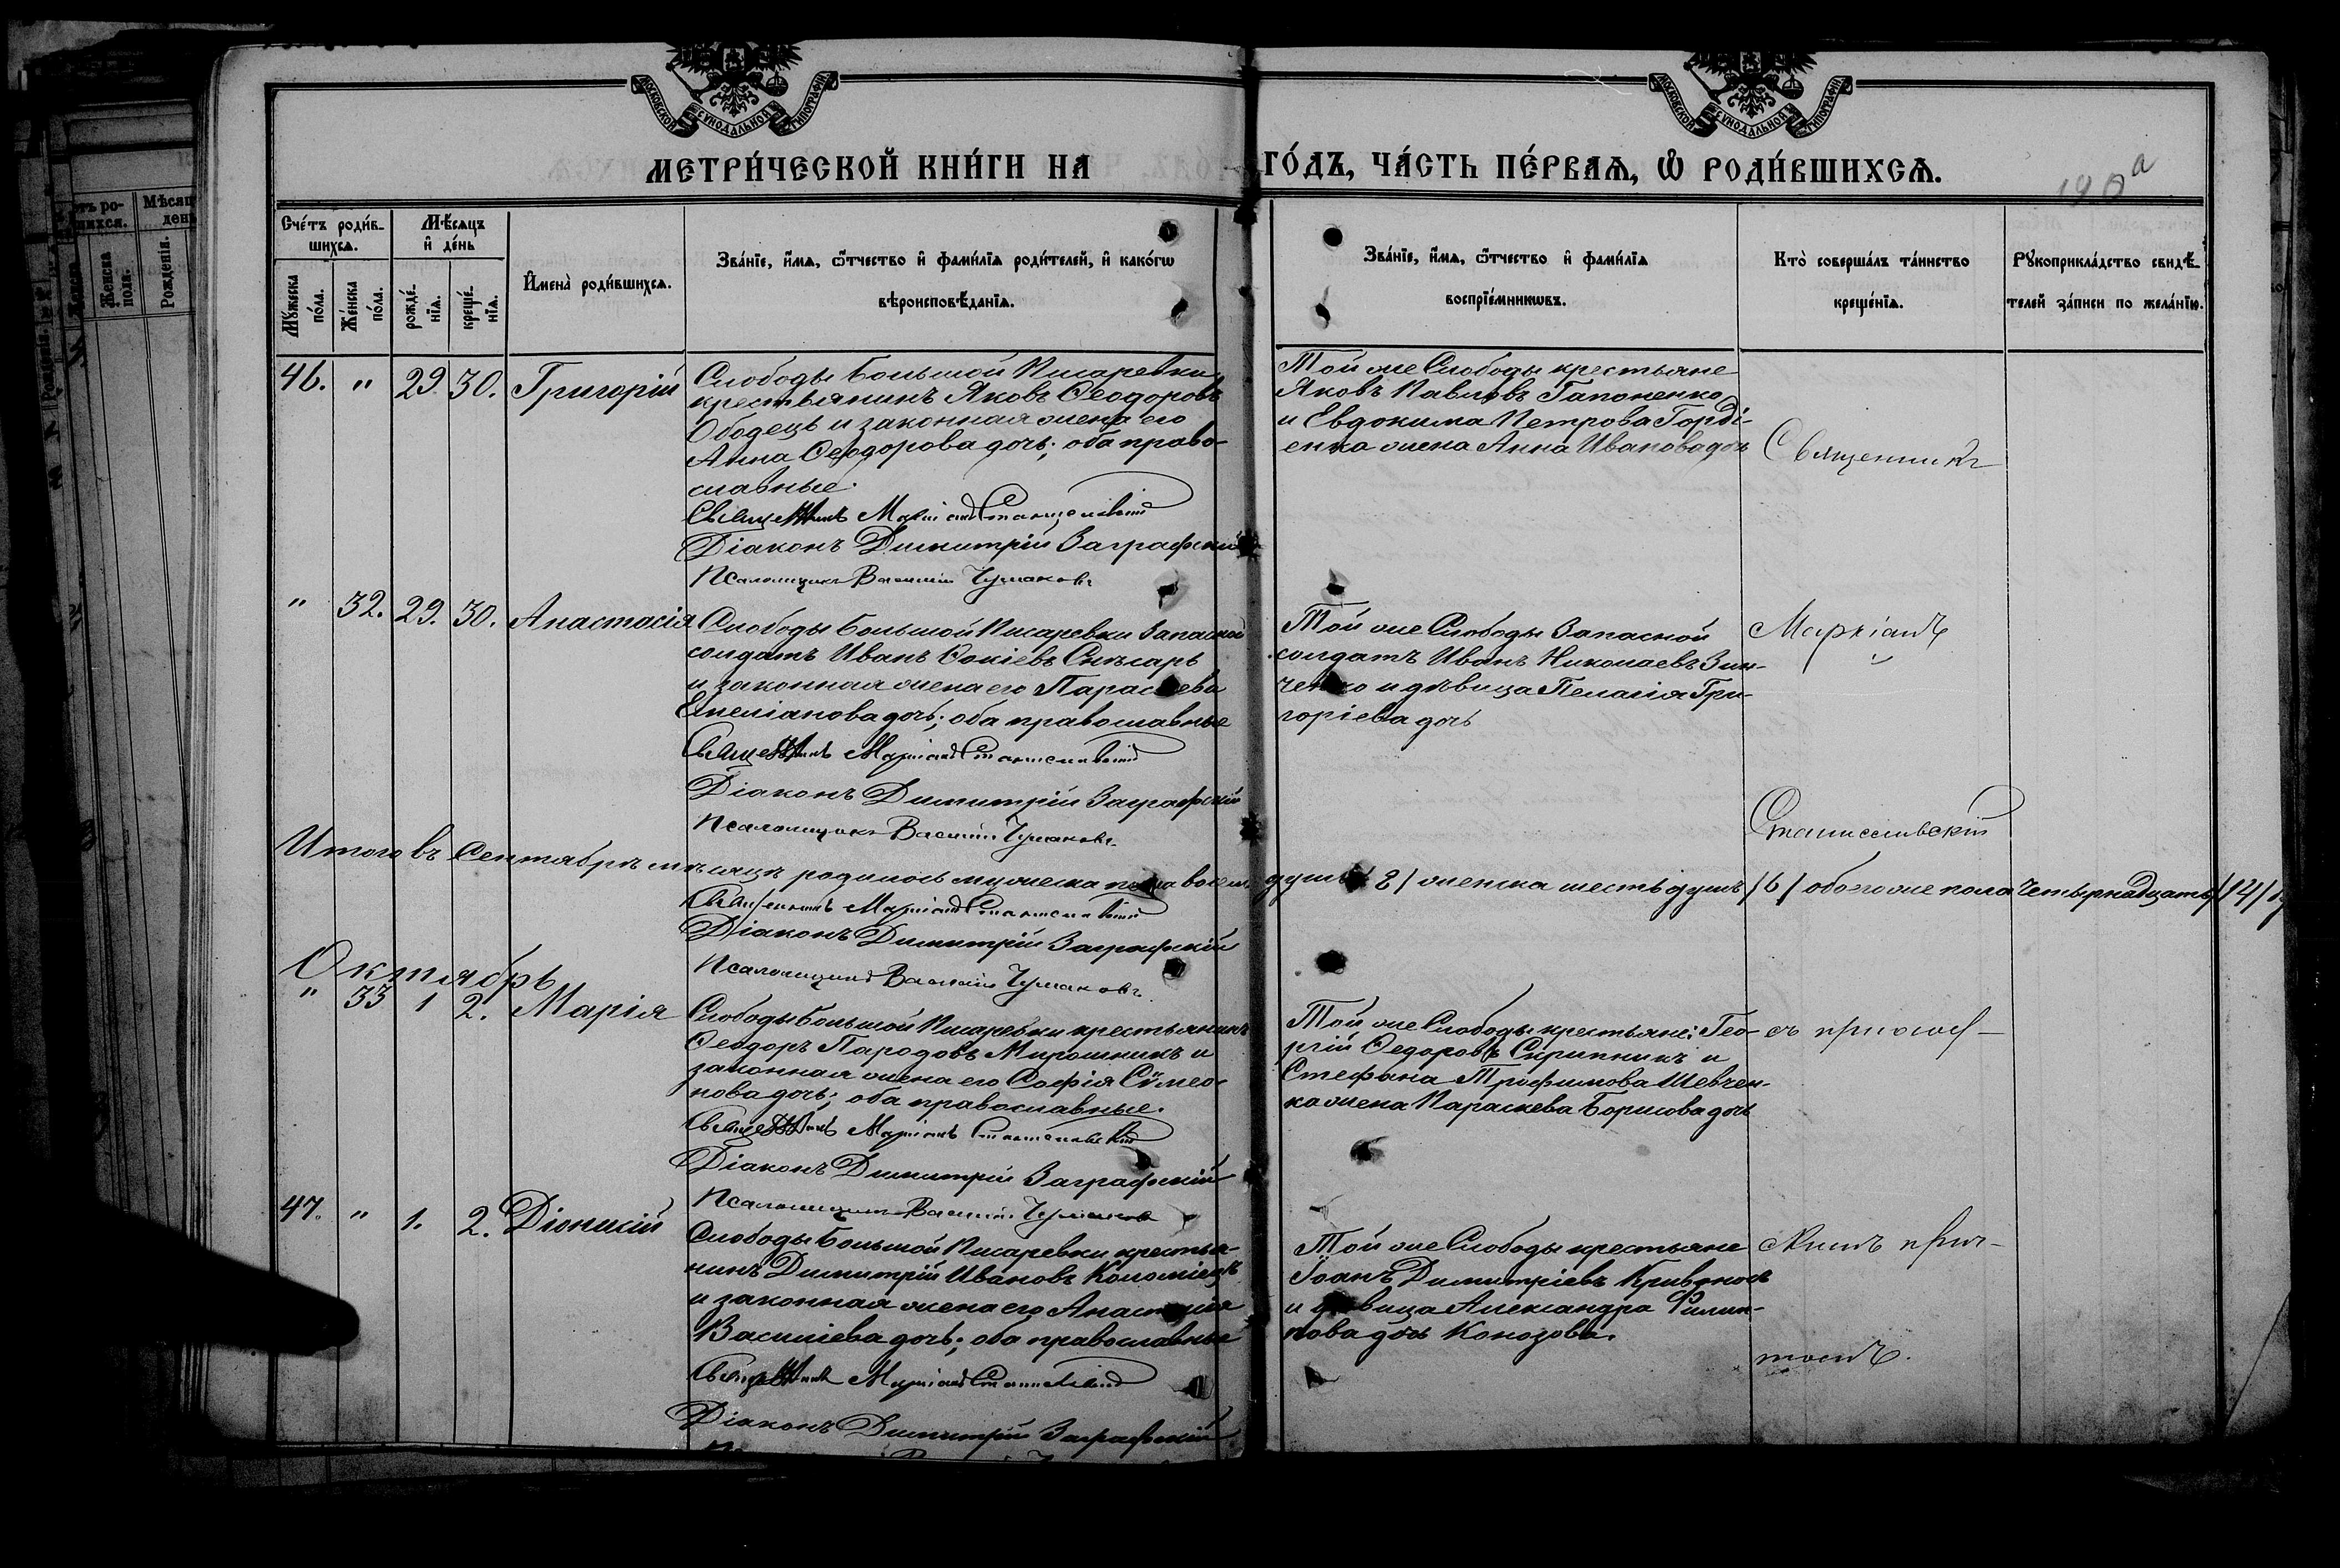 МОСКОВСКОЙ СУНОДАЛЬНОЙ ТИПОГРАФІИ
МОСКОВСКОЙ СУНОДАЛЬНОЙ ТИПОГРАФІИ
МЕТРИ́ЧЕСКОЙ КНИ́ГИ НА ГО́ДЪ, ЧА́СТЬ ПЕ́РВАѦ, Ѿ РОДИ́ВШИХСѦ.
Сче́тъ роди́в-
шихсѧ.
Мꙋ́жеска по́ла.
Же́нска по́ла.
Мѣ́сѧцъ и҆ де́нь
рожде́-
нїѧ.
креще́-
нїѧ.
И҆мена̀ роди́вшихсѧ.
Зва́нїе, и҆́мѧ, ѻ҆́тчество и҆ фами́лїѧ роди́телей, и҆ како́гѡ
вѣроисповѣ́данїѧ.
Зва́нїе, и҆́мѧ, ѻ҆́тчество и҆ фами́лїѧ
воспрїе́мникѡвъ.
Кто̀ соверша́лъ та́инство
креще́нїѧ.
Рꙋкоприкла́дство свидѣ́-
телей за́писи по жела́нїю.
46. " 29 30. Григорій
Слободы Большой Писаревки
крестьянинъ Яковъ Ѳеодоровъ
Ободецъ и законная жена его
Анна Ѳеодорова дочь; оба право-
славные.
Священникъ Маркіанъ Станиславскій
Діаконъ Димитрій Заграфскій
Псаломщикъ Василій Чумаковъ
Той же Слободы крестьяне
Яковъ Павловъ Гапоненко
и Евдокима Петрова Горді-
енка жена Анна Иванова дочь
Священникъ
" 32. 29. 30. Анастасія
Слободы Большой Писаревки Запасной
солдатъ Иванъ Слѣсарь
и законная жена его Параскева
Емеліанова дочь; оба православные
Священникъ Маркіанъ Станиславскій
Діаконъ Димитрій Заграфскій
Псаломщикъ Василій Чумаковъ
Той же Слободы Запасной
солдатъ Иванъ Николаевъ Зин-
ченко и дѣвица Пелагія Гри-
горіева дочь
Маркіанъ
Станиславскій
Итого въ Сентябрѣ мѣсяцѣ родилось мужеска пола восемь душъ /8/ женска шесть душъ /6/ обоего же пола четырнадцать /14/
Священникъ Маркіанъ Станиславскій
Діаконъ Димитрій Заграфскій
Псаломщикъ Василій Чумаковъ
Октябрь
" 33 1 2. Марія
Слободы Большой Писаревки крестьянинъ
Ѳеодоръ Мирошникъ и
законная жена его Софія Сѵмео-
нова дочь; оба православные.
Священникъ Маркіанъ Станиславскій
Діаконъ Димитрій Заграфскій
Псаломщикъ Василій Чумаковъ
Той же Слободы крестьяне: Гео-
ргій Ѳедоровъ Скрипникъ и
Стефана Трофимова Шевчен-
ка жена Параскева Борисова дочь
съ
47. " 1. 2. Діонисій
Слободы Большой Писаревки крестья-
нинъ Димитрій Ивановъ Коломіецъ
и законная жена его Анастасія
Василіева дочь; оба православные
Священникъ Маркіанъ Станиславскій
Діаконъ Димитрій Заграфскій
Той же Слободы крестьяне
Іоанъ Димитріевъ Кривонось
и дѣвица Александра Филип-
пова дочь Конозова.
прич-
томъ.